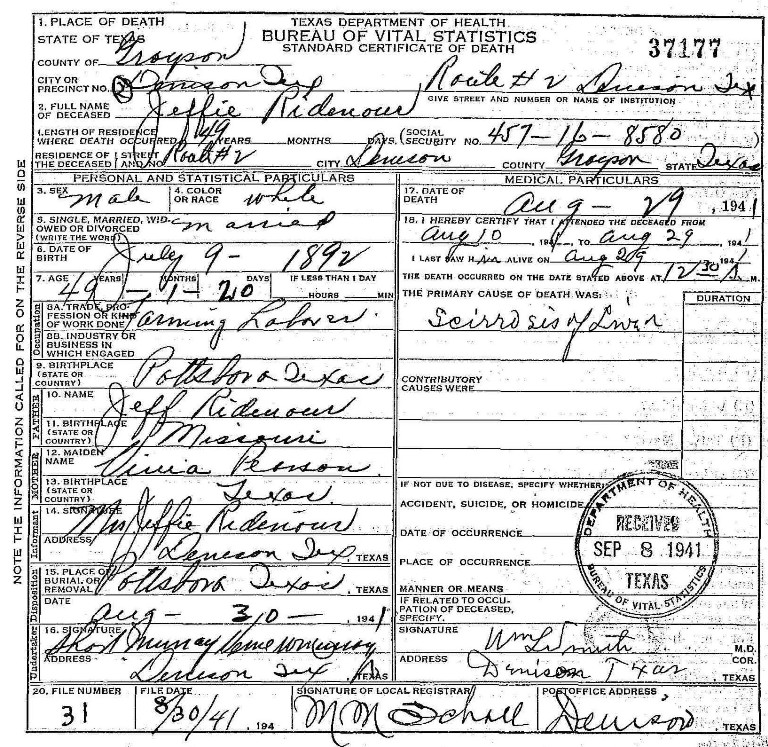 1. PLACE OF DEATH
STATE OF TEXAS
COUNTY OF Grayson
TEXAS DEPARTMENT OF HEALTH
BUREAU OF VITAL STATISTICS
STANDARD CERTIFICATE OF DEATH
37177
CITY OR PRECINCT NO. Denison Tex Route # 2 Denison Tex
GIVE STREET AND NUMBER OR NAME OF INSTITUTION
2. FULL NAME OF DECEASED Jeffie Ridenour
LENGTH OF RESIDENCE WHERE DEATH OCCURRED 49 YEARS MONTHS DAYS (SOCIAL SECURITY NO. 457-16-8580)
RESIDENCE OF THE DECEASED STREET AND NO. Route #2 CITY Denison COUNTY Grayson STATE Texas
NOTE THE INFORMATION CALLED FOR ON THE REVERSE SIDE
PERSONAL AND STATISTICAL PARTICULARS
3. SEX male 4. COLOR OR RACE white
5. SINGLE, MARRIED, WIDOWED OR DIVORCED (WRITE THE WORD) married
6. DATE OF BIRTH July 9 - 1892
7. AGE YEARS MONTHS DAYS IF LESS THAN 1 DAY
49 - 1 - 20 HOURS MIN
Occupation
8A. TRADE, PROFESSION OR KIND OF WORK DONE Farming Laborer
8B. INDUSTRY OR BUSINESS IN WHICH ENGAGED
9. BIRTHPLACE (STATE OR COUNTRY) Pottsboro Texas
FATHER
10. NAME Jeff Ridenour
11. BIRTHPLACE (STATE OR COUNTRY) Missouri
MOTHER
12. MAIDEN NAME Pearson
13. BIRTHPLACE (STATE OR COUNTRY) Texas
Informant
14. SIGNATURE Mrs Jeffie Ridenour
ADDRESS Denison Tex, TEXAS
Undertaker Disposition
15. PLACE OF BURIAL OR REMOVAL Pottsboro Texas, TEXAS
DATE Aug - 30 - , 1941
16. SIGNATURE Short Murray
ADDRESS Denison Tex TEXAS
MEDICAL PARTICULARS
17. DATE OF DEATH Aug - 29, 1941
18. I HEREBY CERTIFY THAT I ATTENDED THE DECEASED FROM
Aug 10, 1941 TO Aug 29, 1941
I LAST SAW HIM ALIVE ON Aug 29, 1941
THE DEATH OCCURRED ON THE DATE STATED ABOVE AT 12 30 A M.
THE PRIMARY CAUSE OF DEATH WAS: DURATION
Scirrosis of Liver
CONTRIBUTORY CAUSES WERE
IF NOT DUE TO DISEASE, SPECIFY WHETHER:
ACCIDENT, SUICIDE, OR HOMICIDE
DATE OF OCCURRENCE
PLACE OF OCCURRENCE
MANNER OR MEANS
IF RELATED TO OCCUPATION OF DECEASED, SPECIFY.
DEPARTMENT OF HEALTH
RECEIVED
SEP 8 1941
TEXAS
BUREAU OF VITAL STATISTICS
SIGNATURE Wm L Smith M.D. COR.
ADDRESS Denison Texas TEXAS
20. FILE NUMBER 31
FILE DATE 8/30/41, 194
SIGNATURE OF LOCAL REGISTRAR M M Scholl
POSTOFFICE ADDRESS Denison, TEXAS